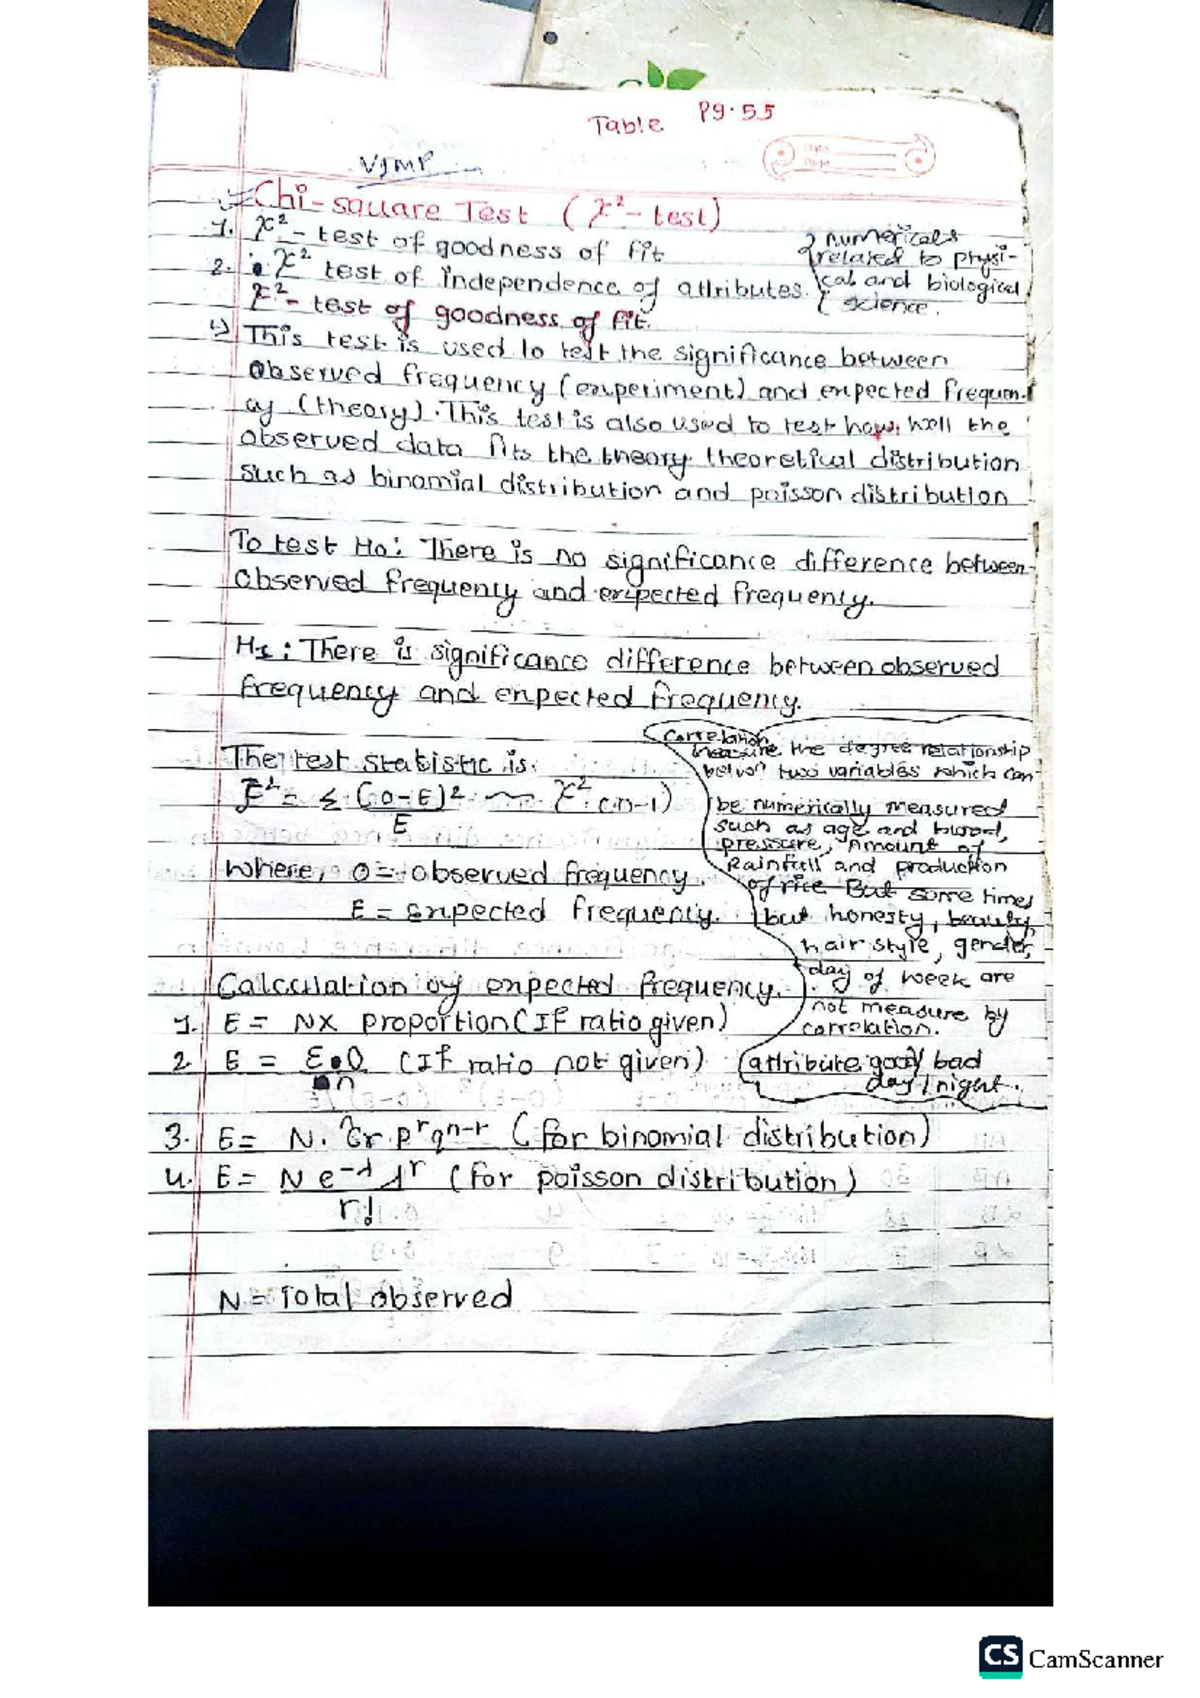 Table Pg. 55
VIMP
Chi-square Test (χ²-test)
1. χ²- test of goodness of fit
2. χ² test of independence of attributes.
} numericals
related to physi-
cal and biological
science.
χ²- test of goodness of fit.
This test is used to test the significance between
observed frequency (experiment) and expected frequen-
cy (theory). This test is also used to test how well the
observed data fits the theory theoretical distribution
such as binomial distribution and poisson distribution
To test H₀: There is no significance difference between
observed frequency and expected frequency.
H₁: There is significance difference between observed
frequency and expected frequency.
The test statistic is:
χ² = Σ (O-E)² ~ χ² (n-1)
E
where, O = observed frequency.
E = Expected frequency.
Correlation
measure the degree relationship
two variables which can
be numerically measured
such as age and blood
pressure, Amount of
Rainfall and production
of rice But some times
but honesty, beauty,
hair style, gender,
day of week are
not measure by
correlation.
(attribute good/bad
day/night.
Calculation of expected frequency.
1. E = N× proportion (If ratio given)
2. E = ΣO (If ratio not given)
n
3. E = N. ⁿCr pʳ qⁿ⁻ʳ (for binomial distribution)
4. E = N e^-λ λʳ (for poisson distribution)
r!
N = Total observed
CS CamScanner